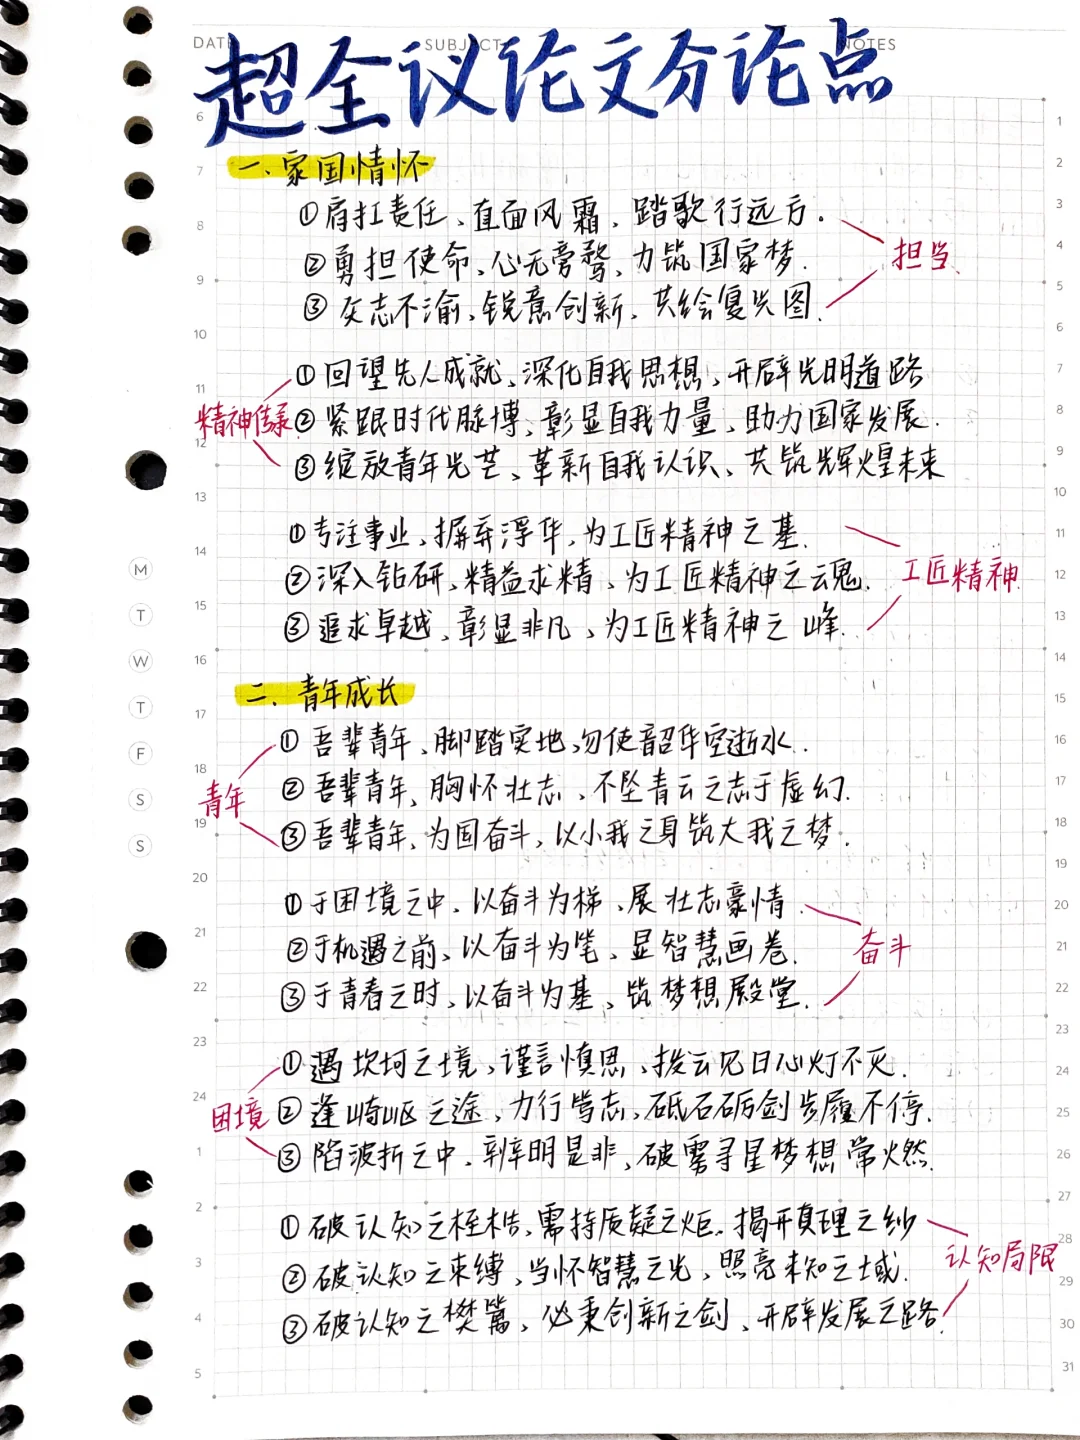 DATE SUBJECT NOTES
超全议论文分论点
一、家国情怀
①肩扛责任、直面风霜、踏歌行远方.
②勇担使命、心无旁骛、力筑国家梦.
担当.
③矢志不渝、锐意创新、共绘复兴图.
①回望先人成就、深化自我思想、开辟光明道路
精神传承
②紧跟时代脉搏、彰显自我力量、助力国家发展.
③绽放青年光芒、革新自我认识、共筑辉煌未来
①专注事业、摒弃浮华、为工匠精神之基.
②深入钻研、精益求精、为工匠精神之魂.
工匠精神.
③追求卓越、彰显非凡、为工匠精神之峰.
二、青年成长
①吾辈青年、脚踏实地、勿使韶华空逝水.
②吾辈青年、胸怀壮志、不坠青云之志于虚幻.
青年
③吾辈青年、为国奋斗、以小我之身筑大我之梦.
①于困境之中、以奋斗为梯、展壮志豪情.
②于机遇之前、以奋斗为笔、显智慧画卷.
奋斗
③于青春之时、以奋斗为基、筑梦想殿堂.
①遇坎坷之境、谨言慎思、拨云见日心灯不灭.
困境
②逢崎岖之途、力行笃志、砥石砺剑步履不停.
③陷波折之中、辨明显非、破雾寻星梦想常燃.
①破认知之桎梏、需持质疑之炬、揭开真理之纱
②破认知之束缚、当怀智慧之光、照亮未知之域.
认知局限
③破认知之樊篱、必秉创新之剑、开辟发展之路.
M
T
W
T
F
S
S
6
7
8
9
10
11
12
13
14
15
16
17
18
19
20
21
22
23
24
1
2
3
4
5
1
2
3
4
5
6
7
8
9
10
11
12
13
14
15
16
17
18
19
20
21
22
23
24
25
26
27
28
29
30
31